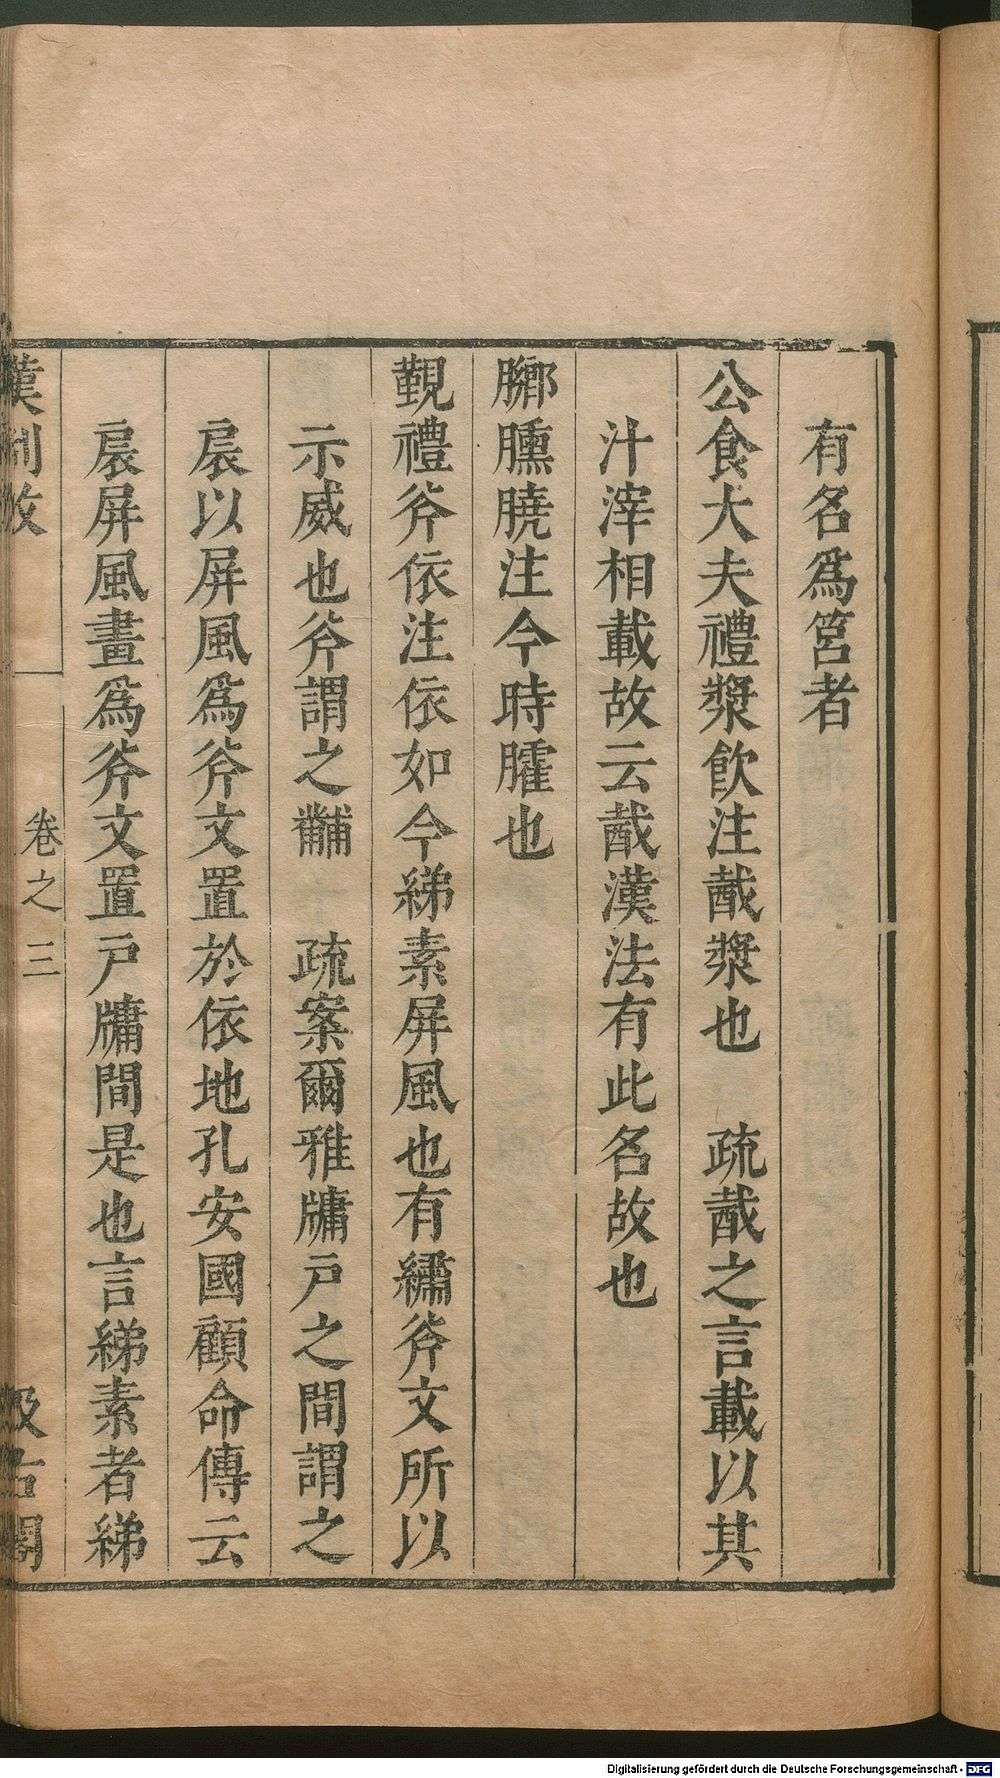 有名爲筥者
公食大夫禮漿飲注䤳漿也　疏䤳之言載以其
汁滓相載故云䤳漢法有此名故也
膷臐膮注今時臛也
覲禮斧依注依如今綈素屏風也有繡斧文所以
示威也斧謂之黼　疏案爾雅牖戶之間謂之
扆以屏風爲斧文置於依地孔安國顧命傳云
扆屏風畫爲斧文置戶牖間是也言綈素者綈
漢制攷　卷之三　汲古閣
Digitalisierung gefördert durch die Deutsche Forschungsgemeinschaft - DFG